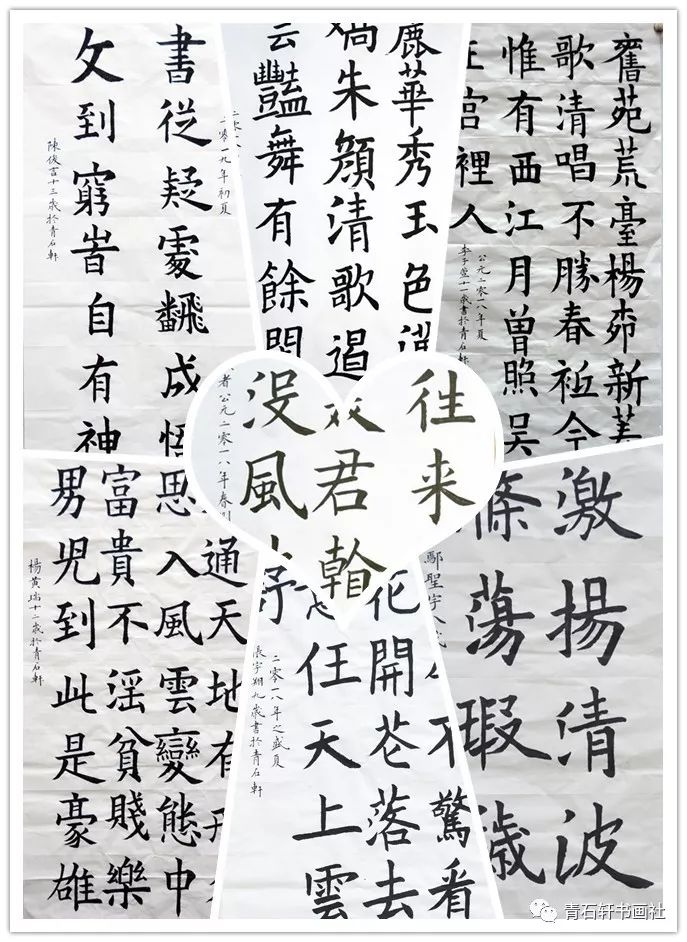 書從疑處飜成悟
文到窮旹自有神
二零一九年初夏
陳俊言十三歲於青石軒
麗華秀玉色
嬌朱顏清歌遏
雲豔舞有餘閒
舊苑荒臺楊柳新菱
歌清唱不勝春祗今
惟有西江月曾照吳
王宫裡人
公元二零一八年夏
李子萱十一歲書於青石軒
往来
君翰
没風
者公元二零一八年春
通天地有形
思入風雲變態中
富貴不淫貧賤樂
男兒到此是豪雄
楊黃瑞十二歲於青石軒
不驚看
花開花落去
意任天上雲
舒
二零一八年之盛夏
張宇翔九歲書於青石軒
激揚清波
滌蕩瑕穢
聖宇八歲
青石轩书画社